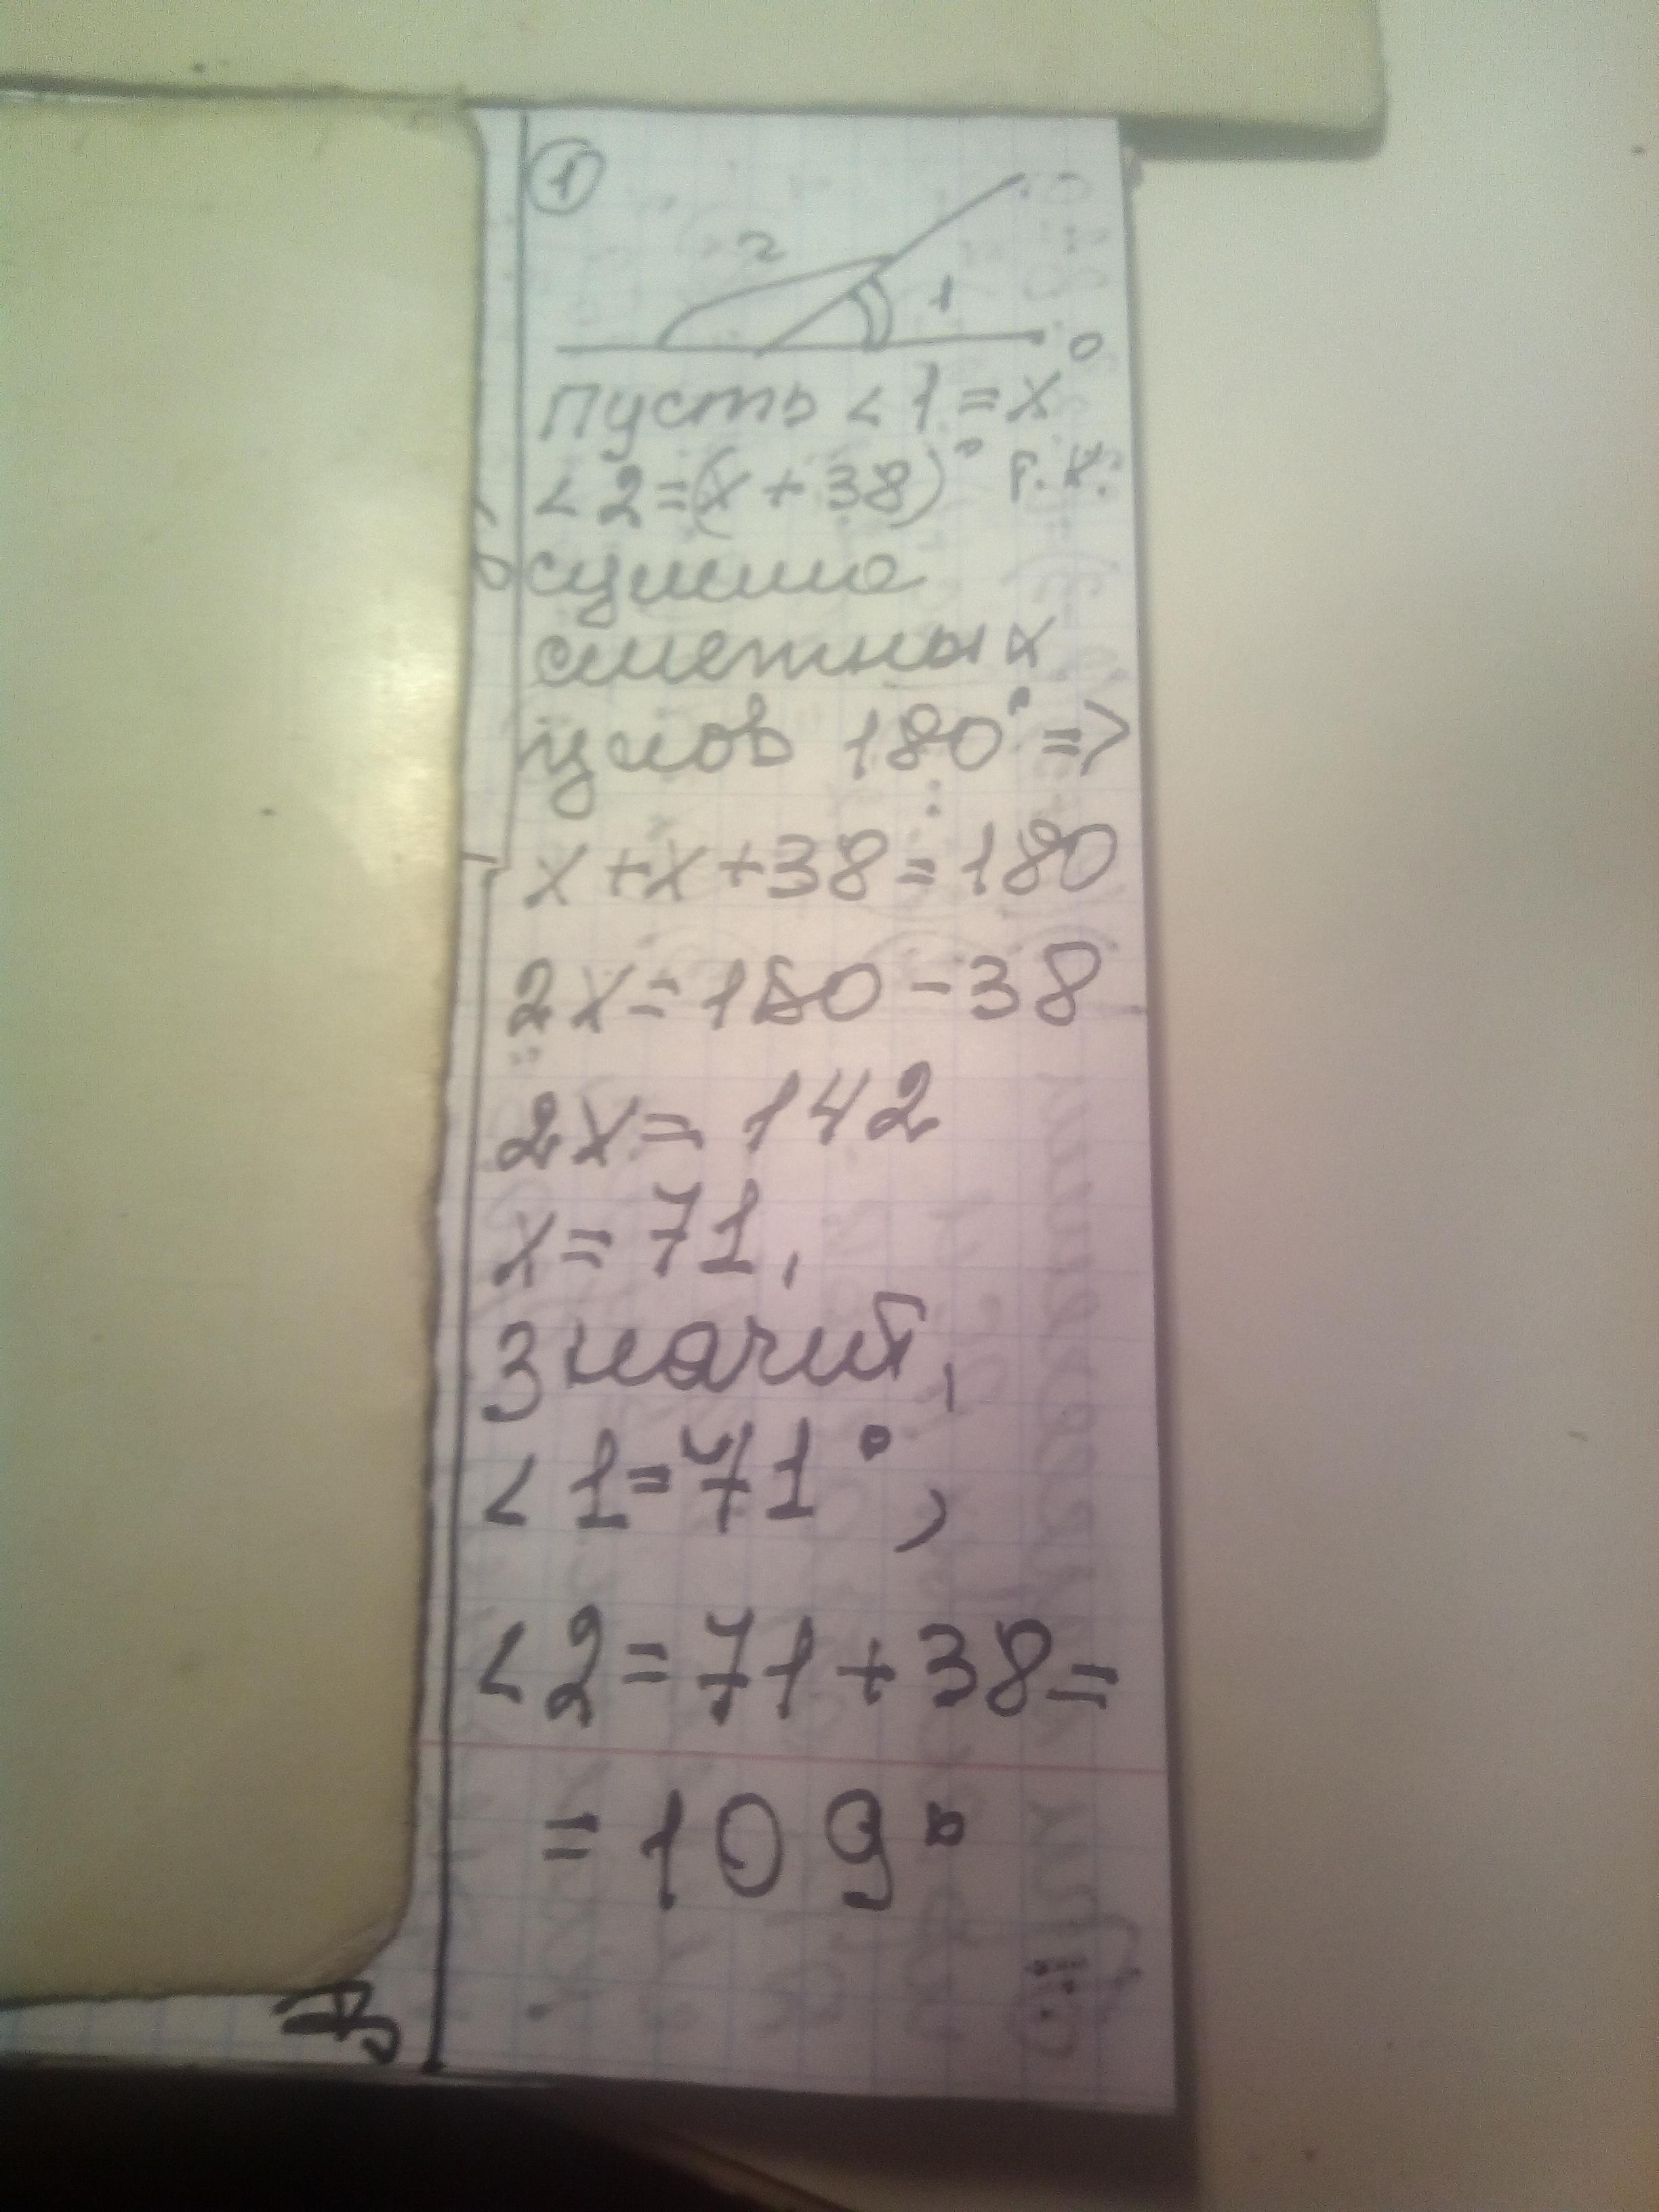 1
2
1
Пусть <1=x°
<2=(x+38)° т.к.
сумма
смежных
углов 180° =>
x+x+38=180
2x=180-38
2x=142
x=71,
Значит,
<1=71°,
<2=71+38=
=109°